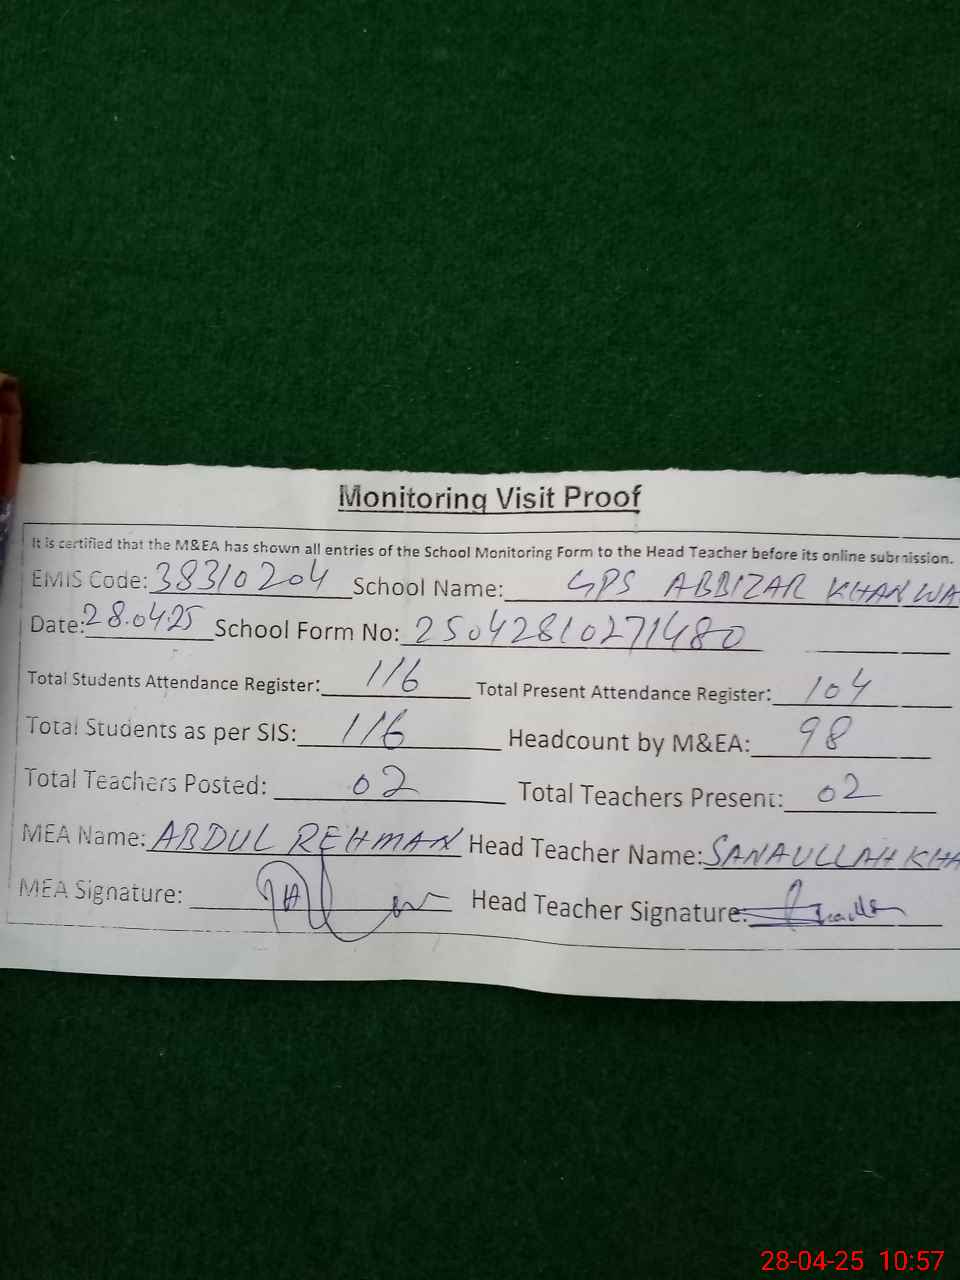 Monitoring Visit Proof
It is certified that the M&EA has shown all entries of the School Monitoring Form to the Head Teacher before its online submission.
EMIS Code: 38310204 School Name: GPS ABBIZAR KHAN WA
Date: 28.04.25 School Form No: 25042810271480
Total Students Attendance Register: 116 Total Present Attendance Register: 104
Total Students as per SIS: 116 Headcount by M&EA: 98
Total Teachers Posted: 02 Total Teachers Present: 02
MEA Name: ABDUL REHMAN Head Teacher Name: SANAULLAH KHA
MEA Signature: Head Teacher Signature:
28-04-25 10:57